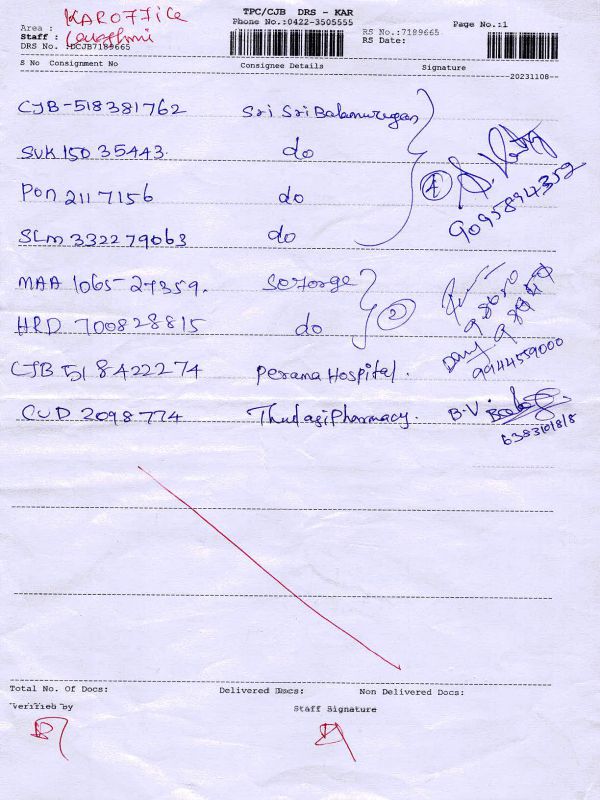 TPC/CJB DRS - KAR
KAR OFFICE
Phone No.:0422-3505555
Page No.:1
Area :
RS No.:7189665
Staff :
RS Date:
DRS No. :DCJB7189665
S No Consignment No Consignee Details Signature
20231108
CJB-518381762 Sri Sri Balamurugan
SVK 150 35443. do
Pon 2117156 do
SLM 332279063 do
9095894352
MAA 1065-27359.
HRD 700828815 do 2
9944559000
CJB 518422274 Perama Hospital.
CUD 2098774 Thulasi Pharmacy. B.V
Total No. Of Docs: Delivered Docs: Non Delivered Docs:
Verified by
Staff Signature